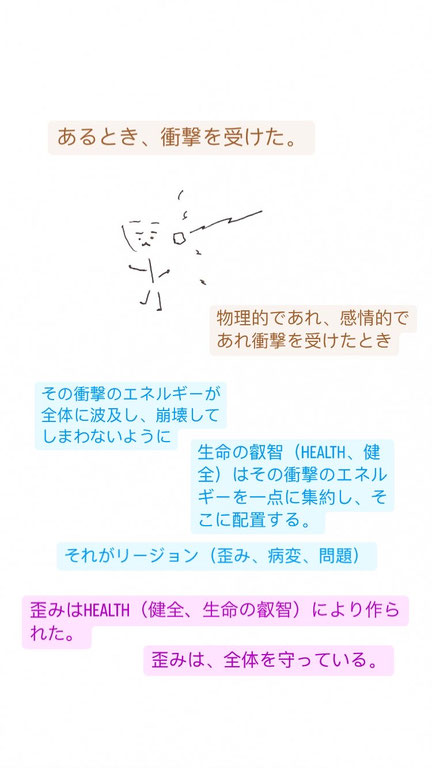 あるとき、衝撃を受けた。
物理的であれ、感情的で
あれ衝撃を受けたとき
その衝撃のエネルギーが
全体に波及し、崩壊して
しまわないように
生命の叡智（HEALTH、健
全）はその衝撃のエネル
ギーを一点に集約し、そ
こに配置する。
それがリージョン（歪み、病変、問題）
歪みはHEALTH（健全、生命の叡智）により作ら
れた。
歪みは、全体を守っている。